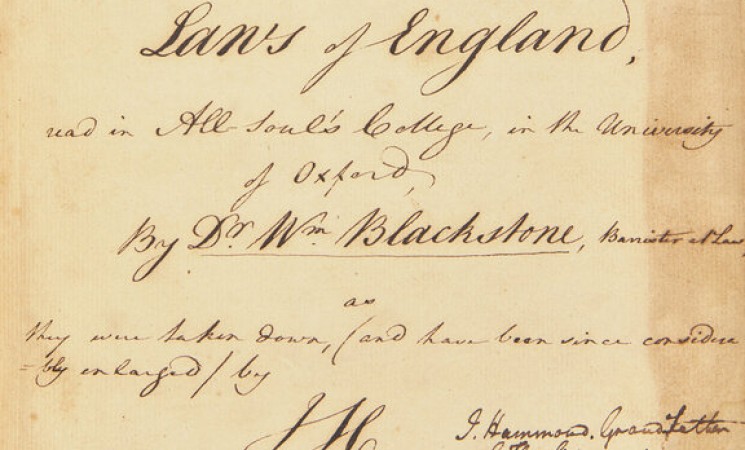 Laws of England,
read in All-Soul's College, in the University
of Oxford,
By Dr. Wm. Blackstone, Barrister at Law,
as
they were taken down, (and have been since considera
=bly enlarged) by
JH
J. Hammond. Grand Father